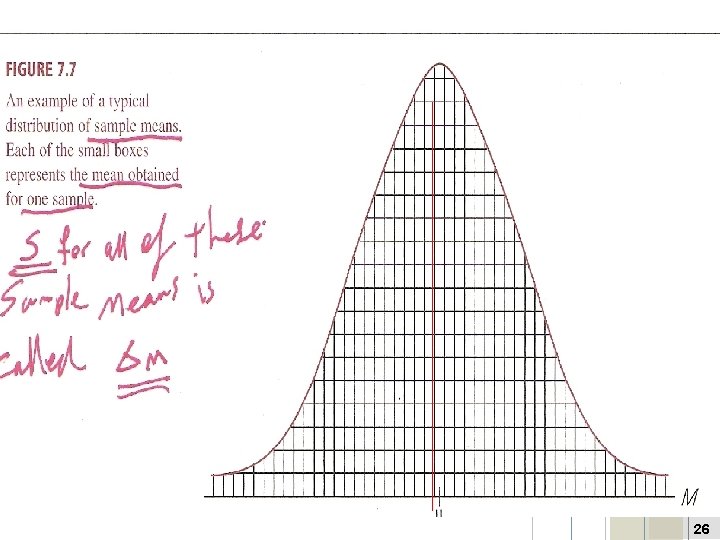 FIGURE 7.7
An example of a typical
distribution of sample means.
Each of the small boxes
represents the mean obtained
for one sample.
S for all of these
Sample Means is
called σM
M
μ
26